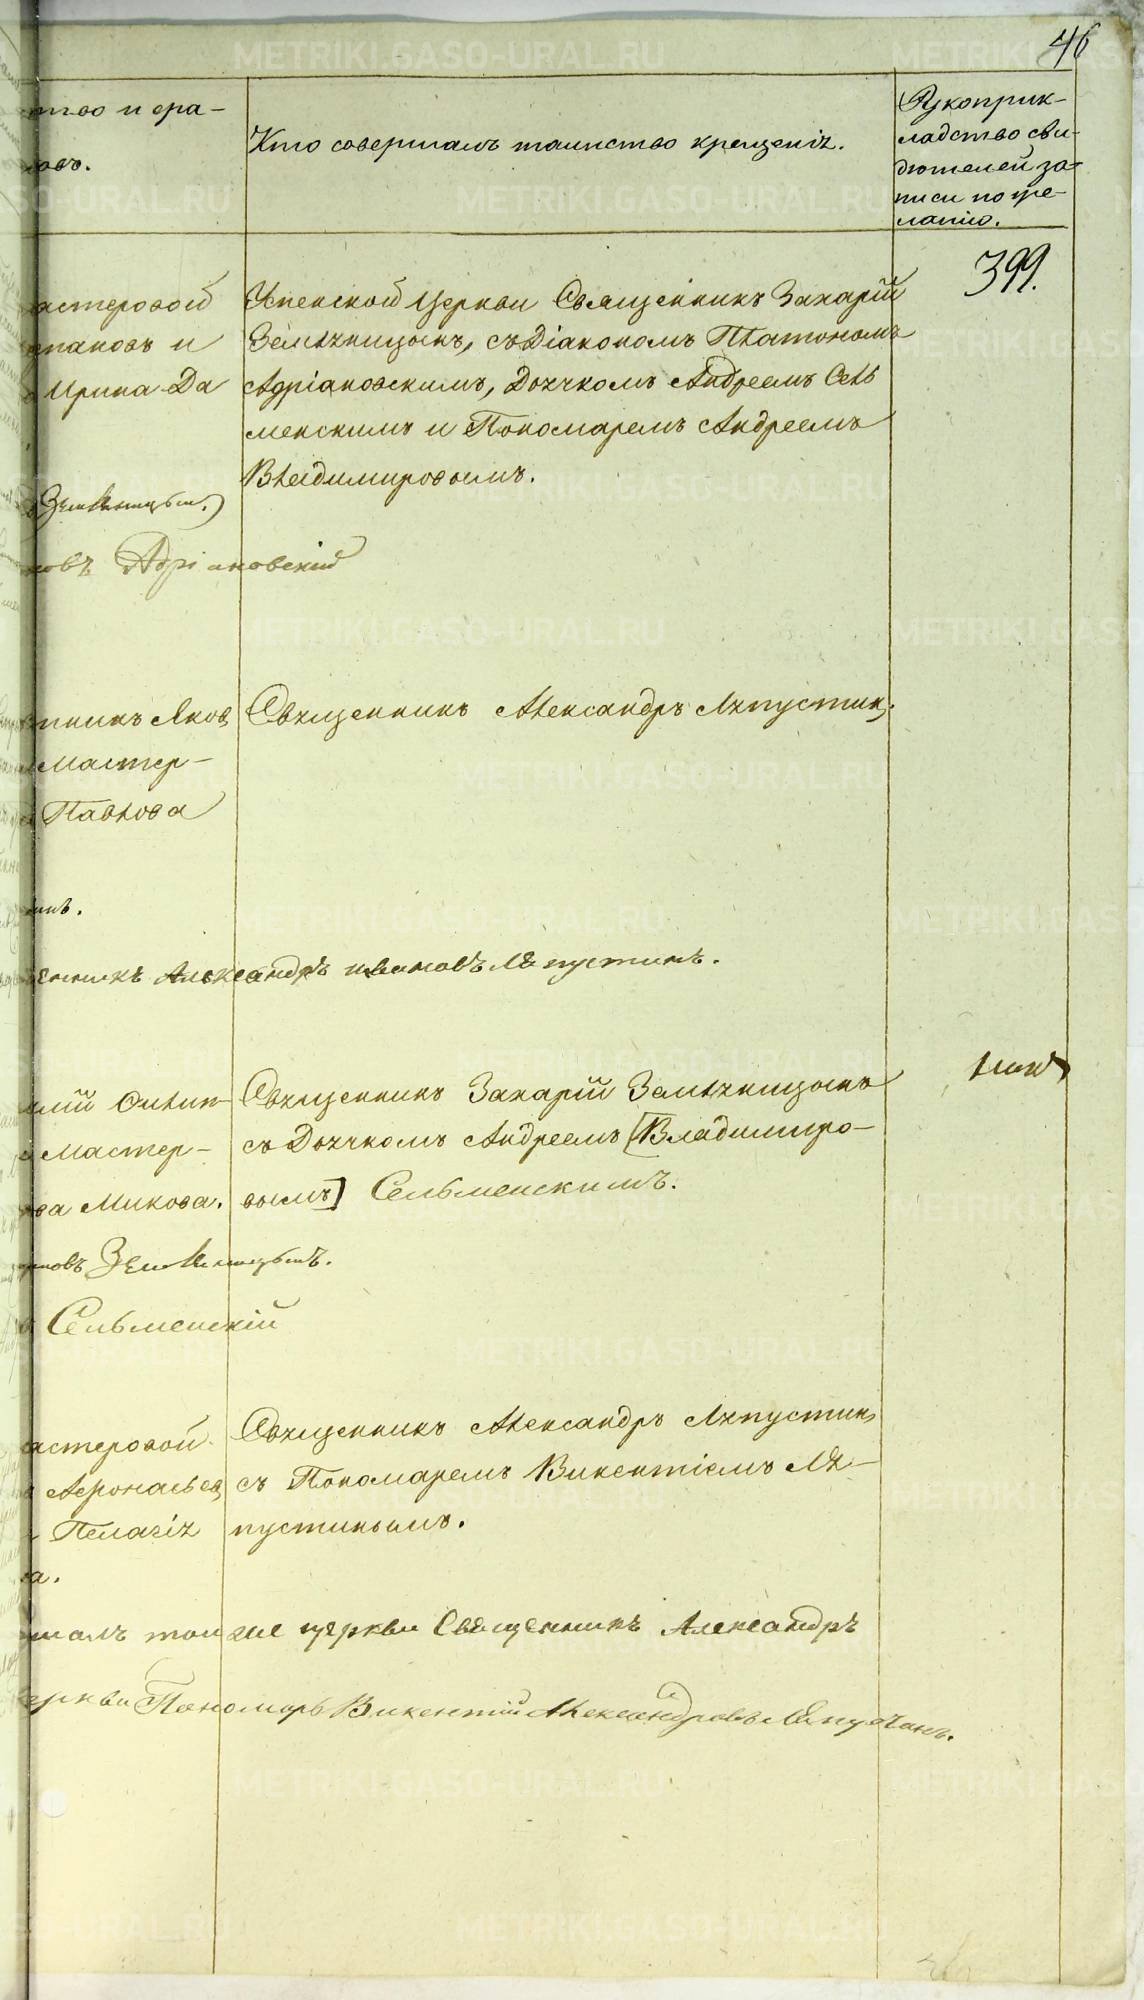 46
тво и фа-
ловъ.
Кто совершалъ таинство крещенія.
Рукоприк-
ладство сви-
дѣтелей за-
писи по же-
ланію.
399.
астеровой
пановъ и
Ирина Да
Успенской Церкви Священникъ Захарій
Земляницынъ, съ Діакономъ Платономъ
Адріановскимъ, Дьячкомъ Андреемъ Сель
менскимъ и Пономаремъ Андреемъ
Владимировымъ.
Земляницынъ.
новъ Адріановскій
нникъ Яков
Мастер-
Павлова
Священникъ Александръ Ляпустин.
инъ.
енникъ Александръ Ивановъ Ляпустинъ.
лій Филип-
Мастер-
ва Микова.
Священникъ Захарій Земляницынъ
съ Дьячкомъ Андреемъ [Владимиро-
вымъ] Сельменскимъ.
новъ Земляницынъ.
Сельменскій
астеровой
Аѳонасьев
Пелагія
ва.
Священникъ Александръ Ляпустин
съ Пономаремъ Викентіемъ Ля-
пустинымъ.
шалъ той же церкви Священникъ Александръ
церкви Пономарь Викентій Александровъ Ляпустинъ.
METRIKI.GASO-URAL.RU